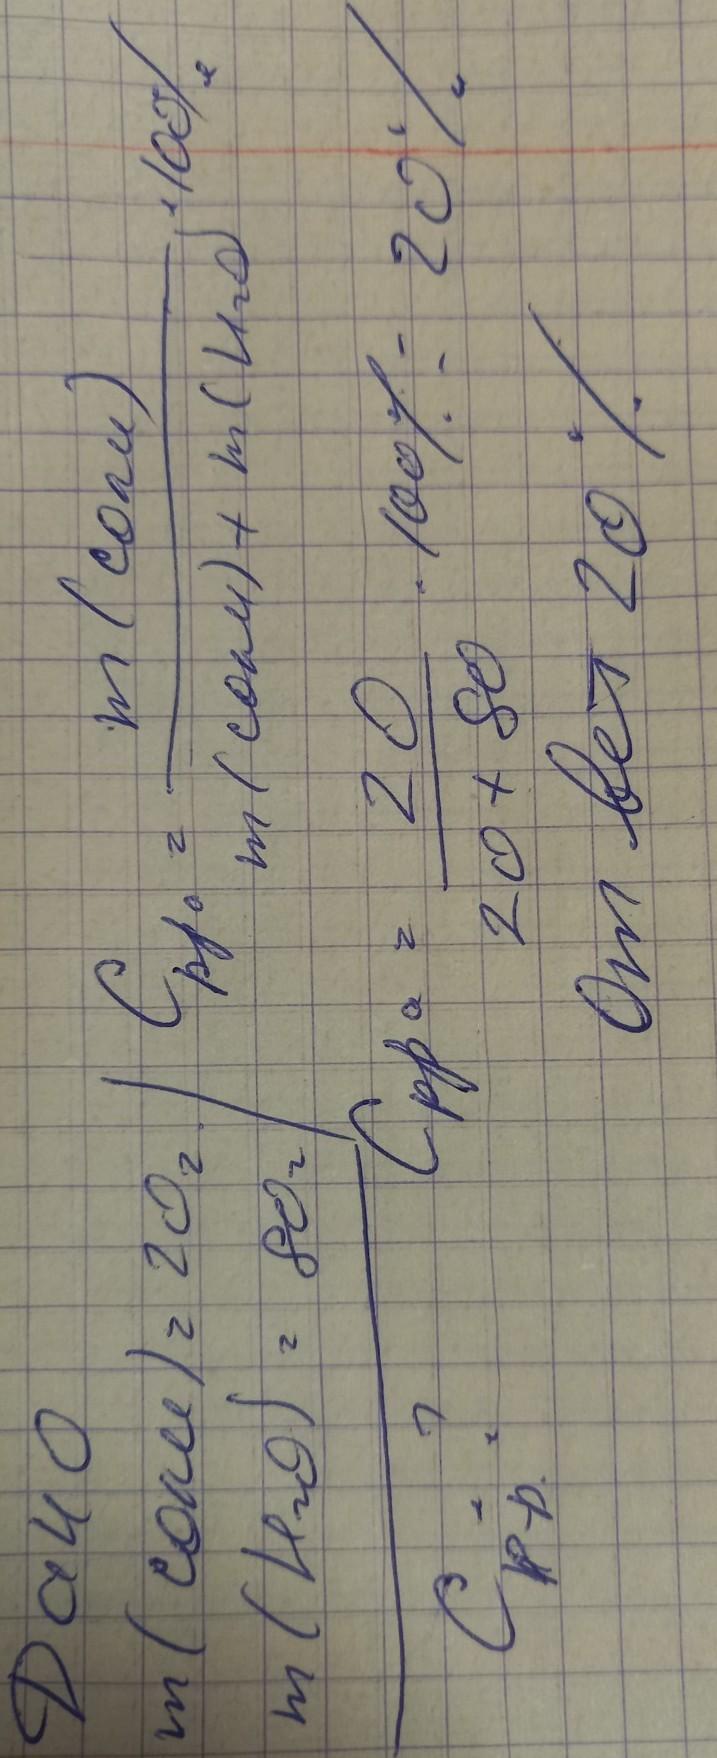 Дано
m(соли) = 20г
m(H₂O) = 80г
C р-р. - ?
C р-ра = m(соли) / m(соли) + m(H₂O) · 100%
C р-ра = 20 / 20 + 80 · 100% = 20%
Ответ 20%